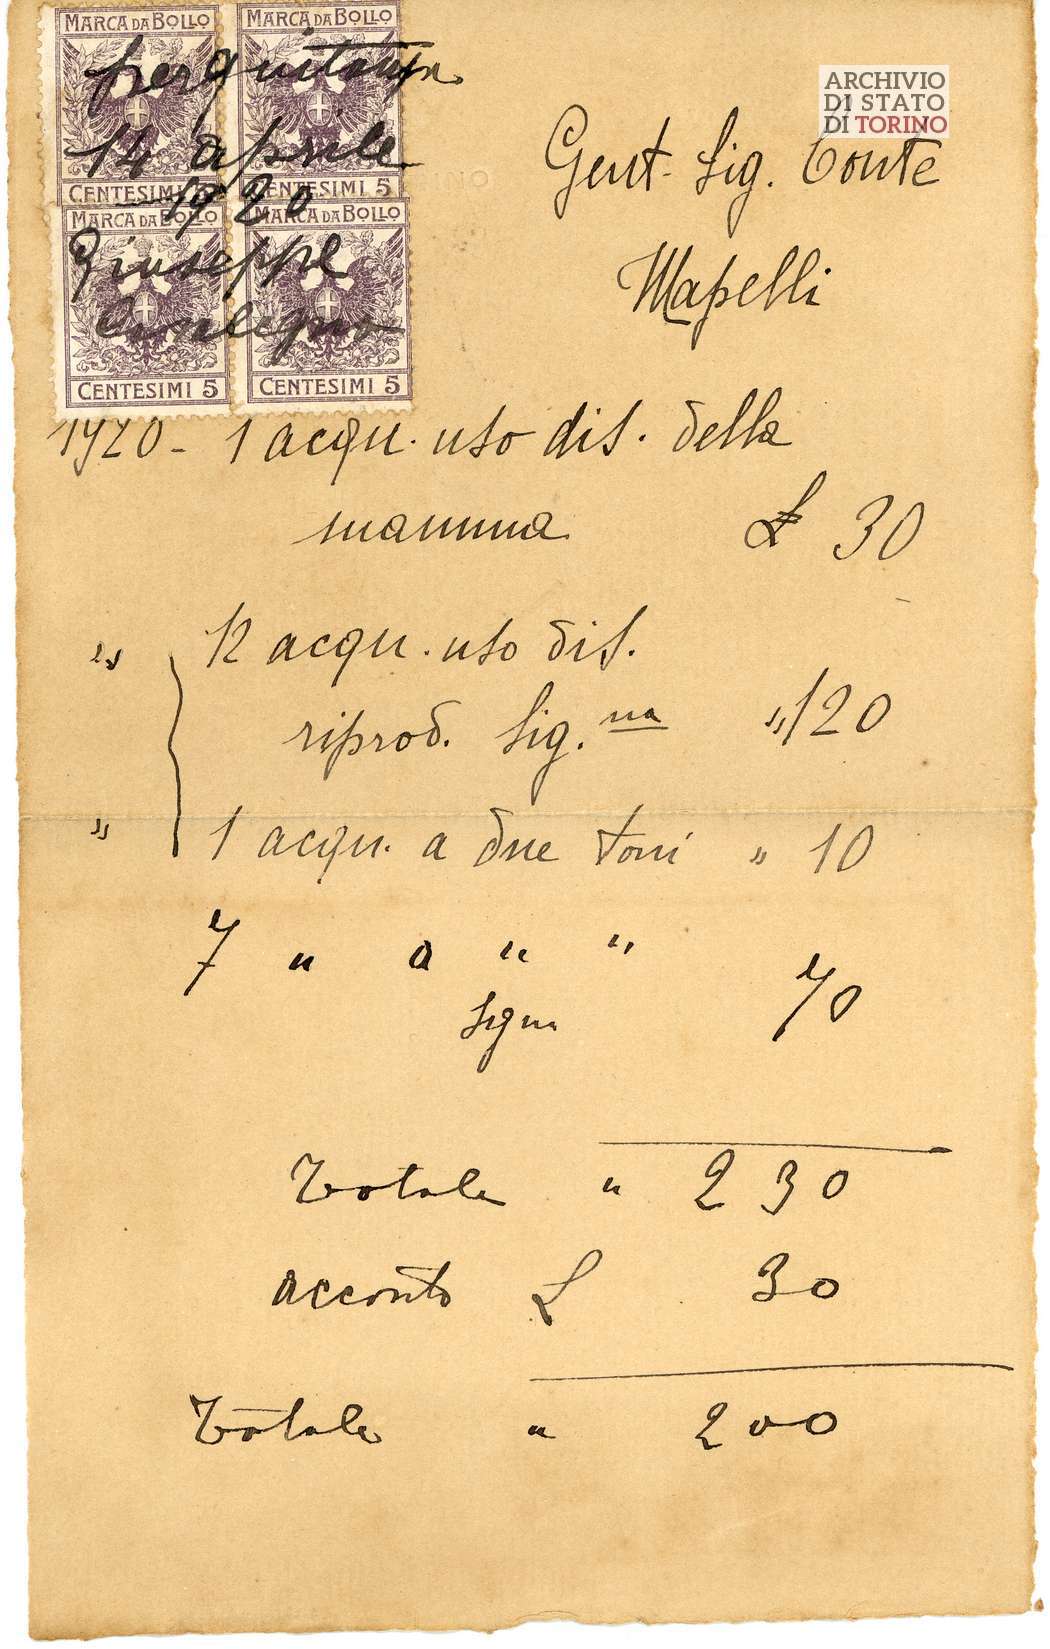 MARCA DA BOLLO MARCA DA BOLLO
per quitanza
14 aprile
CENTESIMI 5 CENTESIMI 5
1920
MARCA DA BOLLO MARCA DA BOLLO
Giuseppe
CENTESIMI 5 CENTESIMI 5
ARCHIVIO
DI STATO
DI TORINO
Gent. Sig. Conte
Mapelli
1920 - 1 acqu. uso dis. della
mamma £ 30
" 12 acqu. uso dis.
riprod. Sig.na " 120
" 1 acqu. a due toni " 10
7 " a " "
Signa 70
Totale " 230
acconto £ 30
Totale " 200